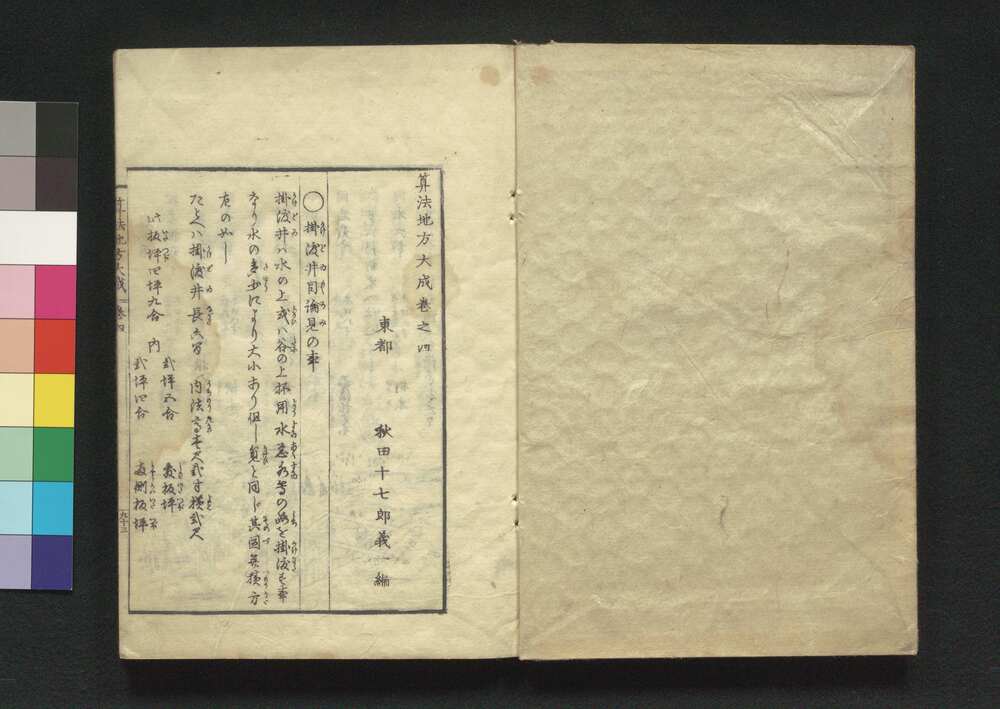 算法地方大成巻之四
東都 秋田十七郎義一編
〇掛渡井目論見の事
掛渡井ハ水の上或ハ谷の上抔用水悪水等の路を掛渡す事
なり水の多少により大小あり但し筧と同じ其図并積方
左の如し
たとへハ掛渡井長六間 内法高サ壱尺弐寸横弐尺
弐坪五合 敷板坪
此板坪四坪九合 内
弐坪四合 両側板坪
算法地方大成 巻四
九十三